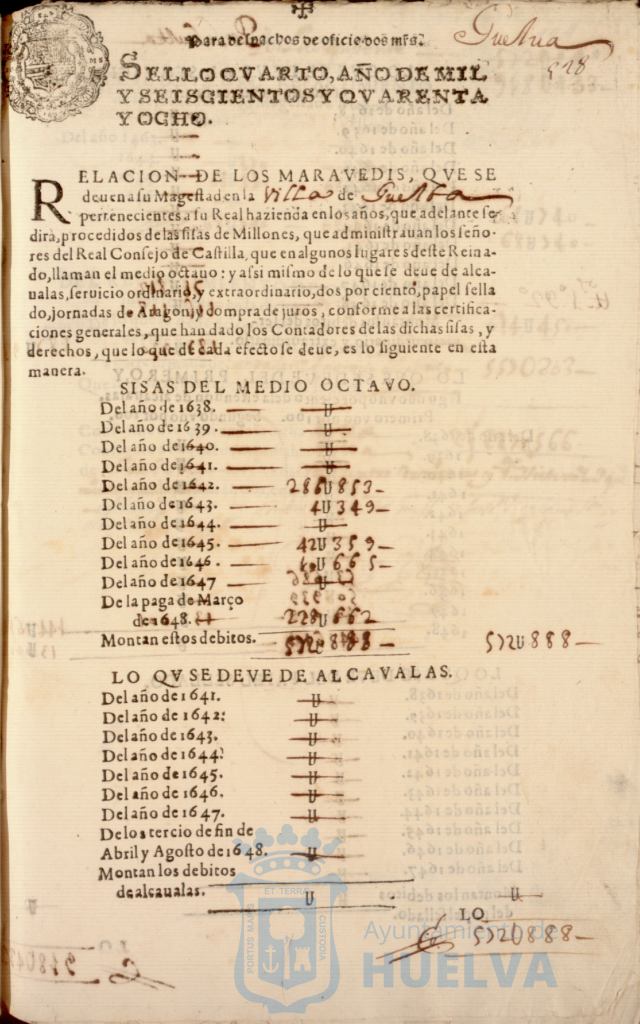 Para despachos de oficio dos mrs.
Guelua
528
SELLO QVARTO, AÑO DE MIL
Y SEISCIENTOS Y QVARENTA
Y OCHO.
RELACION DE LOS MARAVEDIS, QVE SE
deuen a su Magestad en la Villa de Guelba
pertenecientes a su Real hazienda en los años, que adelante se
dirà, procedidos de las sisas de Millones, que administrauan los seño-
res del Real Consejo de Castilla, que en algunos lugares deste Reina-
do, llaman el medio octauo: y assi mismo de lo que se deue de alca-
ualas, seruicio ordinario, y extraordinario, dos por ciento, papel sella
do, jornadas de Aragon, y compra de juros, conforme a las certifica-
ciones generales, que han dado los Contadores de las dichas sisas, y
derechos, que lo que de cada efecto se deue, es lo siguiente en esta
manera.
SISAS DEL MEDIO OCTAVO.
Del año de 1638. U
Del año de 1639. U
Del año de 1640. U
Del año de 1641. U
Del año de 1642. 286U853
Del año de 1643. 4U349
Del año de 1644. U
Del año de 1645. 42U359
Del año de 1646. U665
Del año de 1647 U
De la paga de Março
de 1648. 228U662
Montan estos debitos. 572U888 572U888
LO QV SE DEVE DE ALCAVALAS.
Del año de 1641. U
Del año de 1642: U
Del año de 1643. U
Del año de 1644. U
Del año de 1645. U
Del año de 1646. U
Del año de 1647. U
De los tercio de fin de
Abril y Agosto de 1648. U
Montan los debitos
de alcaualas. U U
LO
572U888
ET TERRÆ
PORTUS MARIS
CUSTODIA
Ayuntamiento de
HUELVA